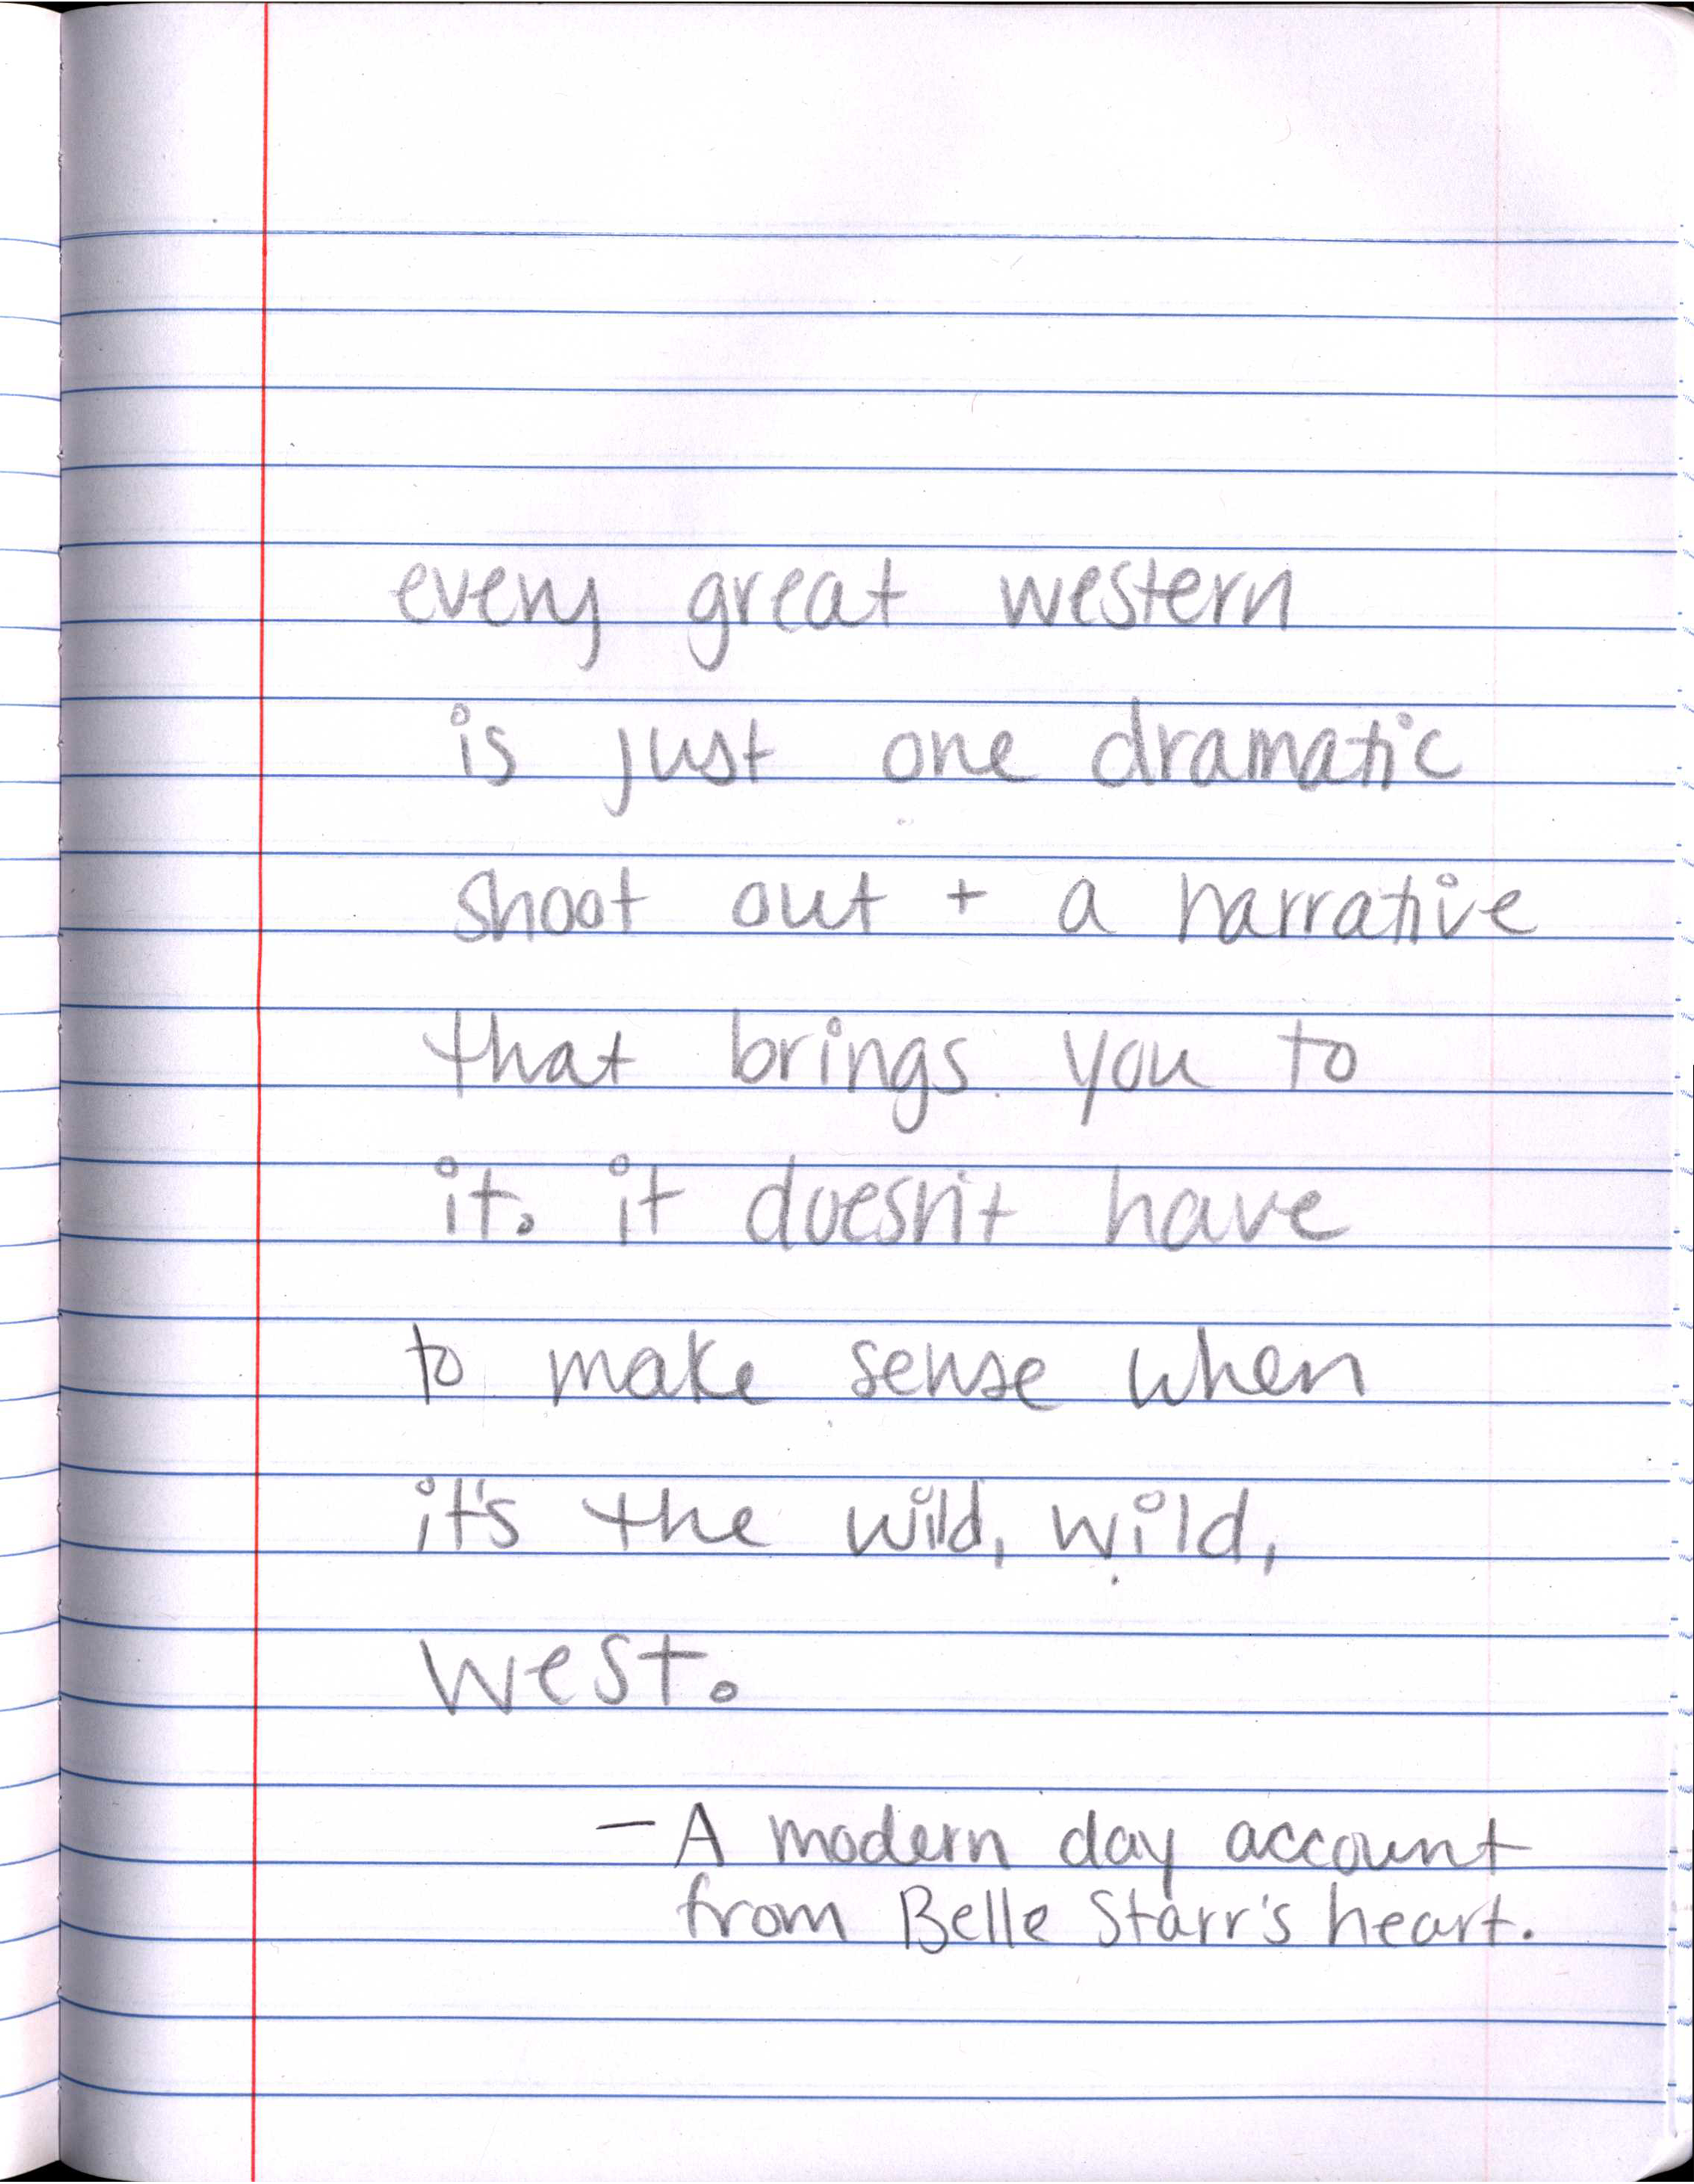 every great western
is just one dramatic
shoot out + a narrative
that brings you to
it. it doesn't have
to make sense when
it's the wild, wild,
west.
— A modern day account
from Belle Starr's heart.